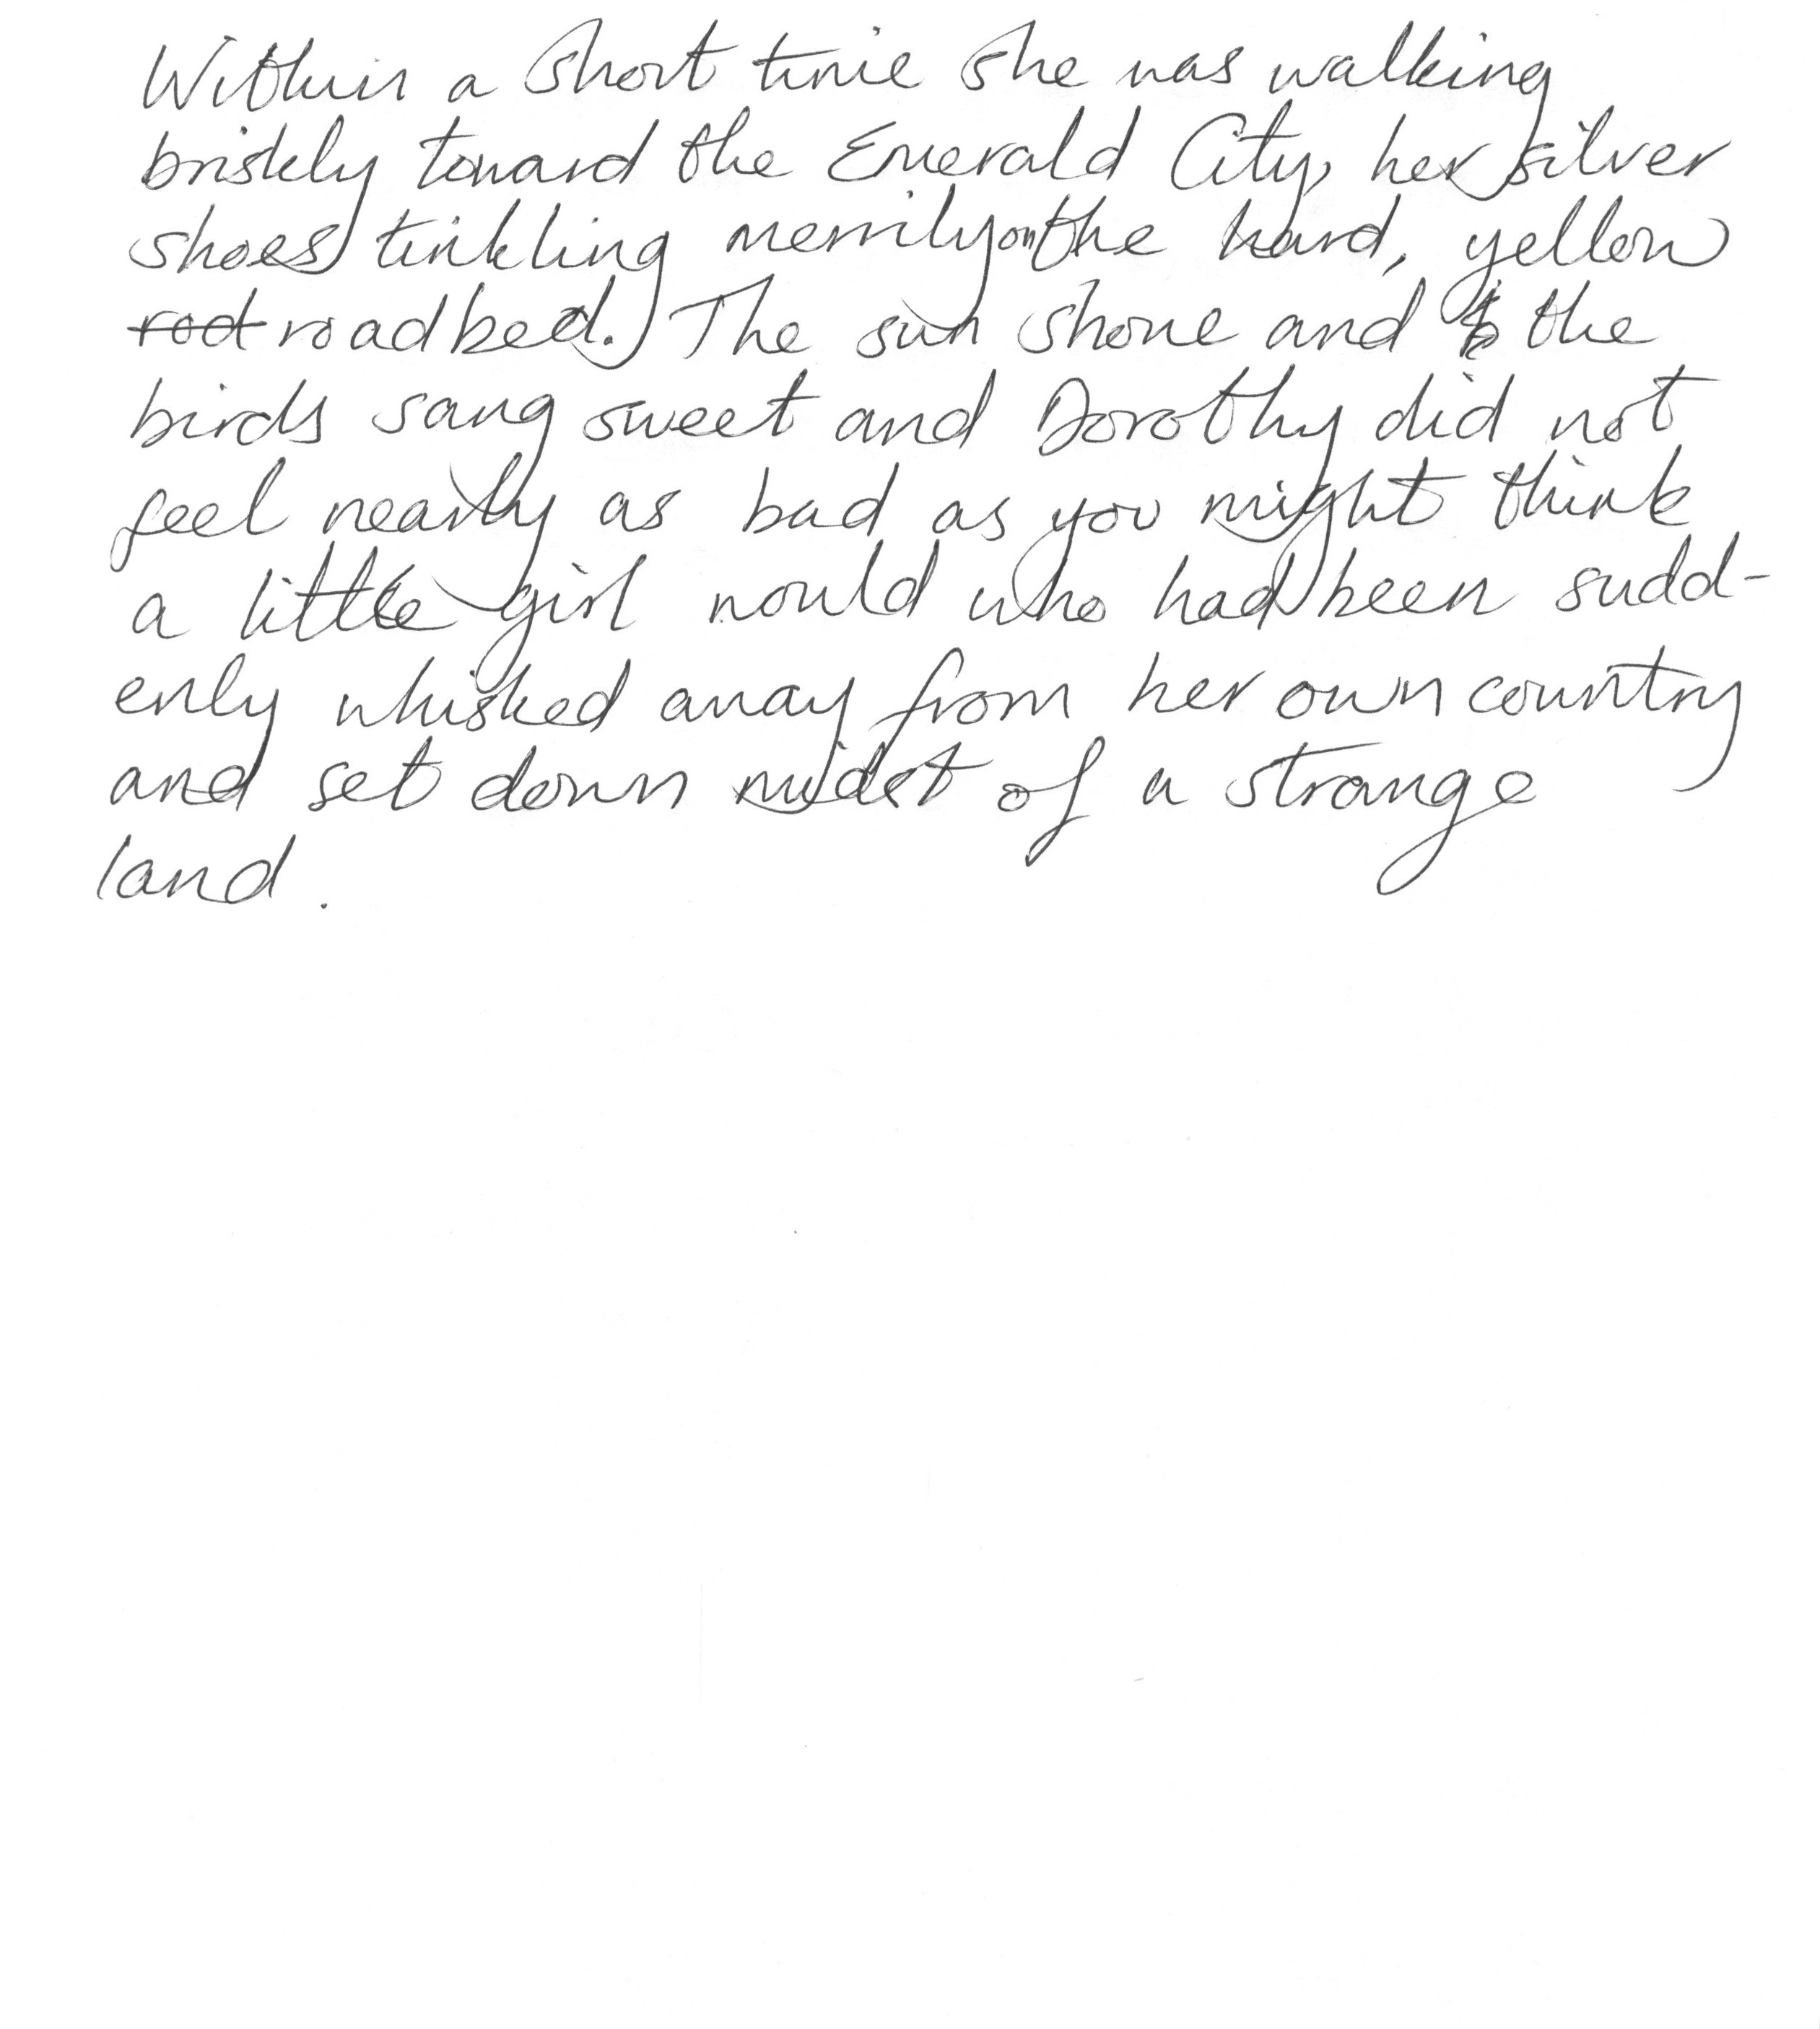 Within a short time she was walking
briskly toward the Emerald City, her silver
shoes tinkling merrily on the hard, yellow
rod roadbed. The sun shone and the
birds sang sweet and Dorothy did not
feel nearly as bad as you might think
a little girl would who had been sudd-
enly whisked away from her own country
and set down midst of a strange
land.